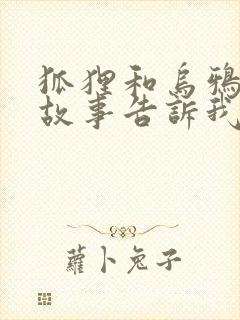 狐狸和烏鴉
故事告訴我
蘿卜兔子